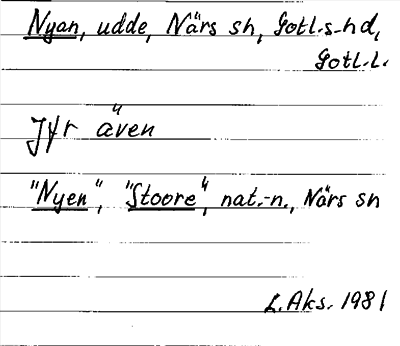 Nyan, udde, Närs sn, Gotl.s.hd,
Gotl.l.
Jfr även
"Nyen", "Stoore", nat.-n., Närs sn
L. Aks. 1981